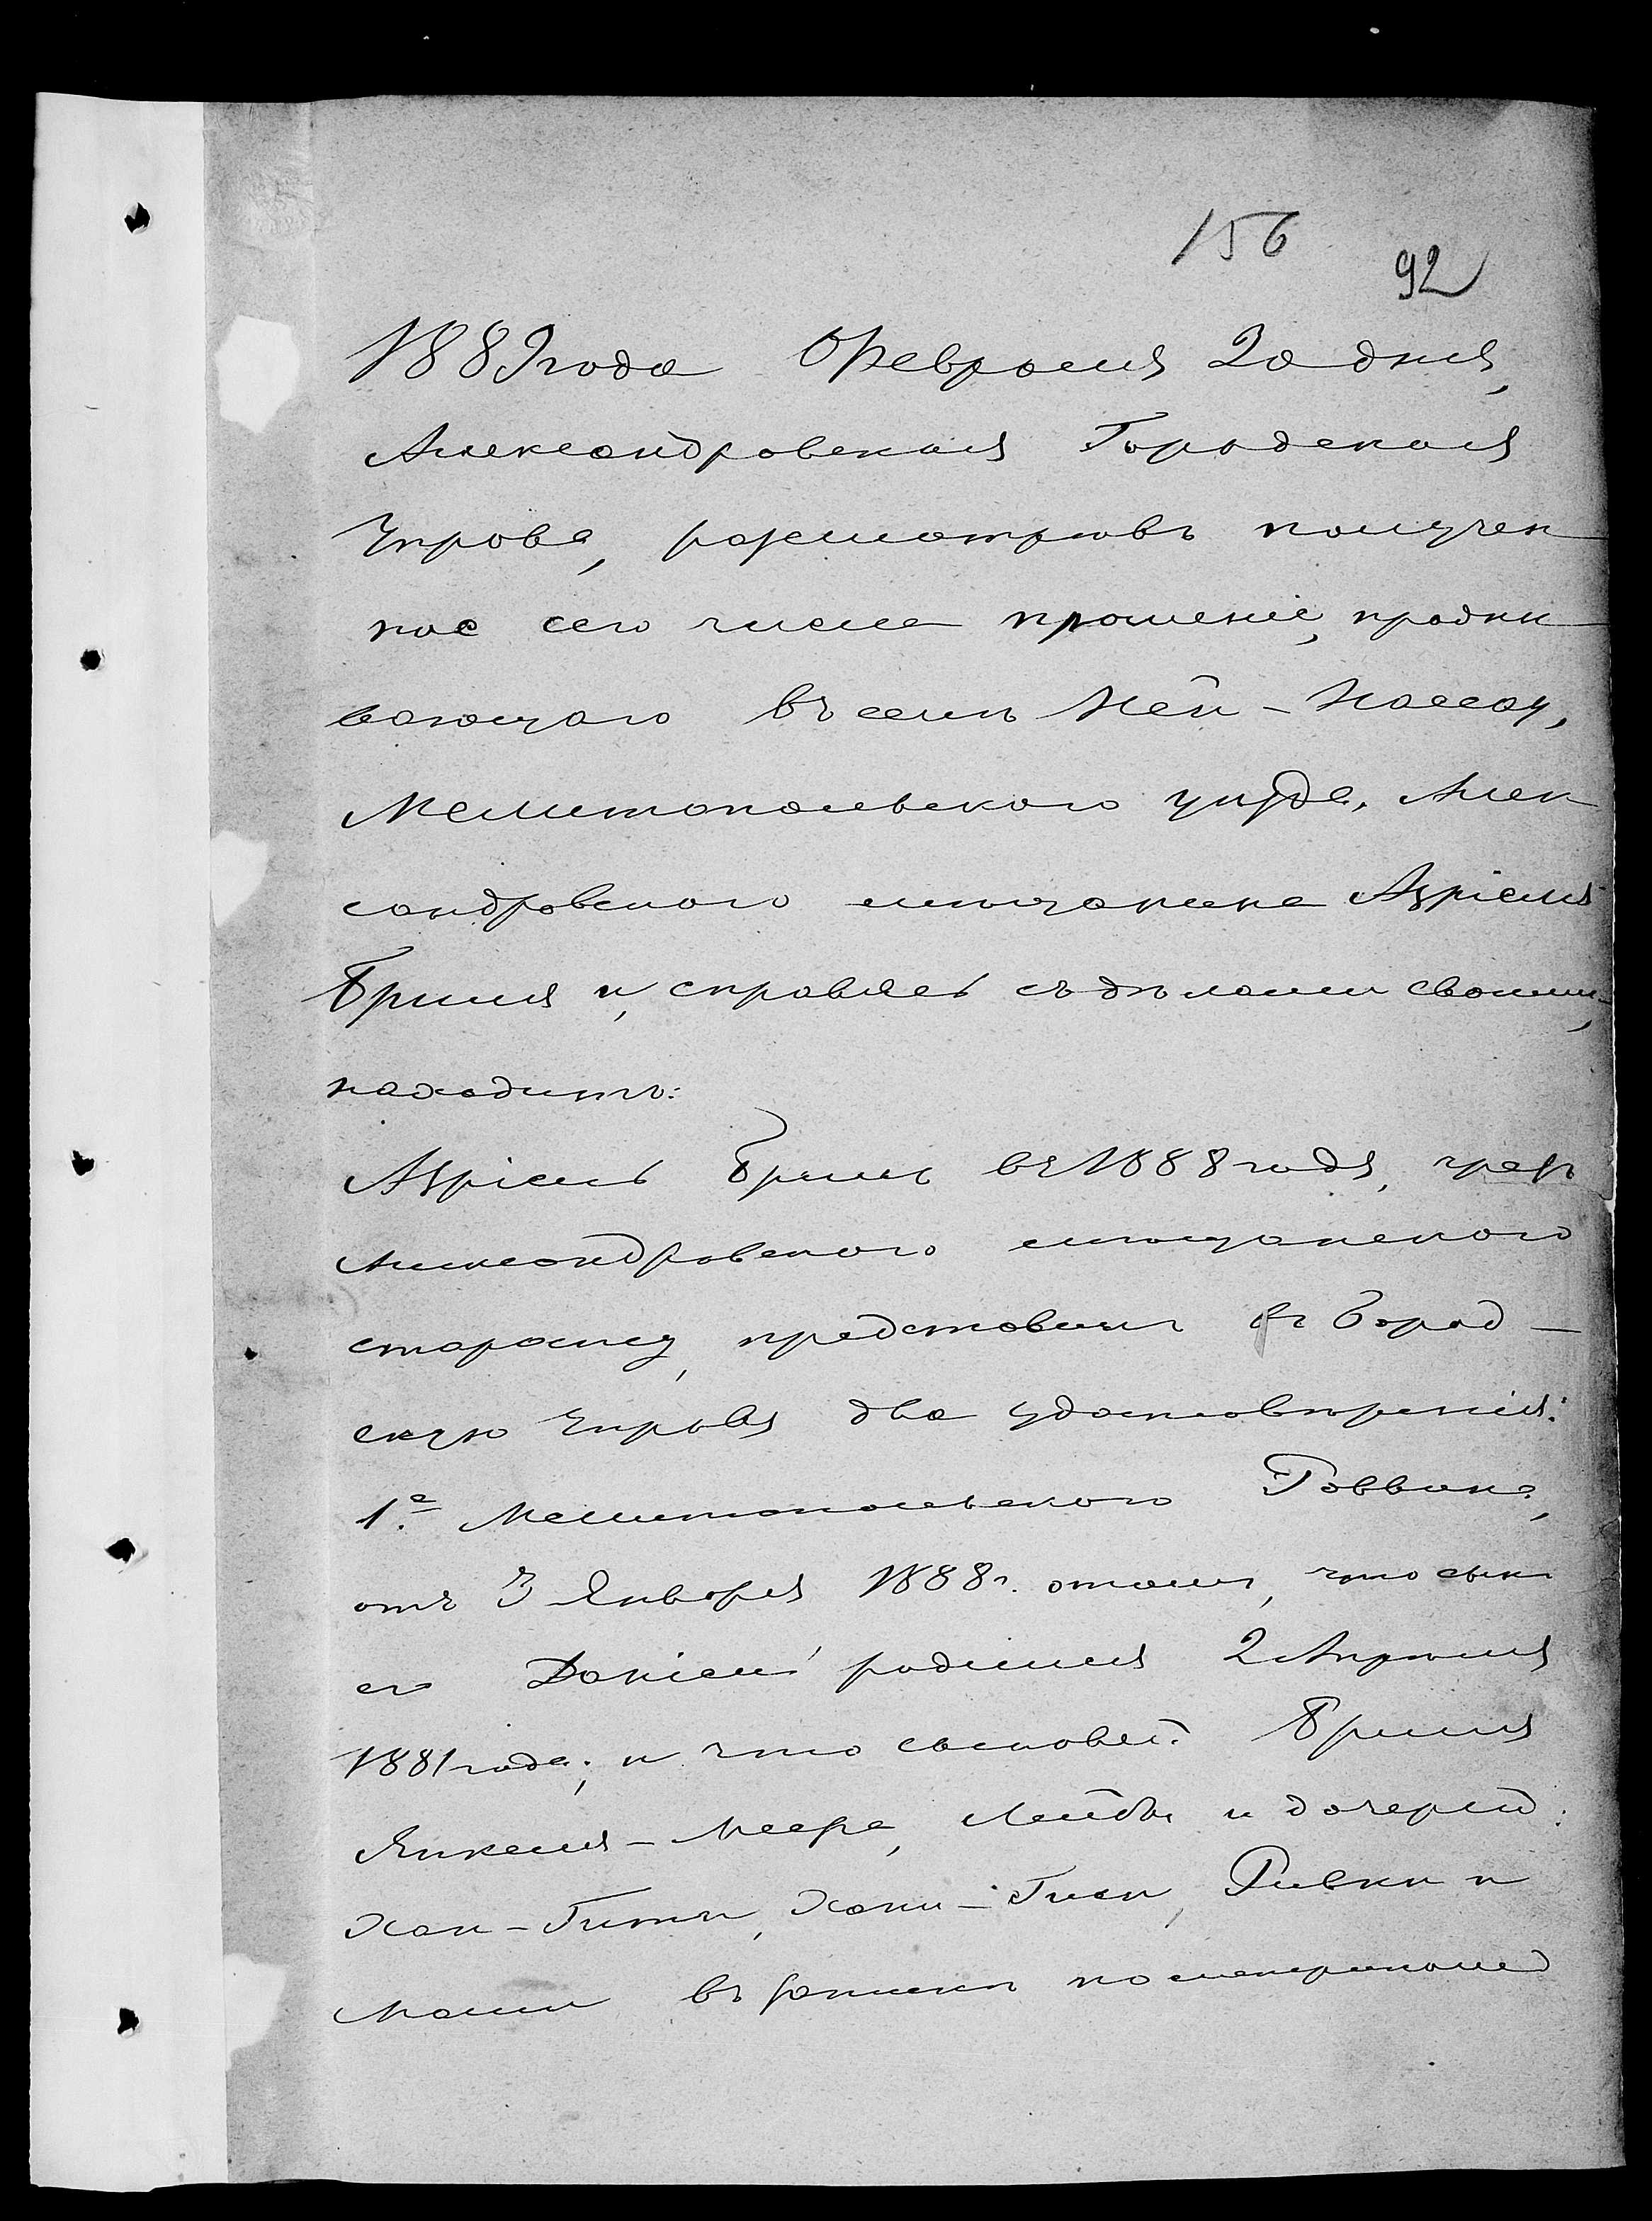 156
92
1889 года Февраля 20 дня,
Александровская Городская
Управа, разсмотревъ получен
ное сего числа прошеніе, прожи
вающаго въ селѣ Ней-Нассау,
Мелитопольскаго уѣзда, Алек
сандровскаго мѣщанина Азріеля
Бриля и, справясь съ дѣлами своими,
находитъ:
Азріель Бриль въ 1888 году, чрезъ
Александровскаго мѣщанского
старосту, представилъ въ Город-
скую Управу два удостовѣренія:
1е Мелитопольскаго Раввина,
отъ 3 Января 1888 г. о томъ, что сынъ
его Даніель родился 2 Апрѣля
1881 года; и что сыновей Бриля
Янкеля-Меера, Лейбы и дочерей:
Хаи-Гиты, Ханы-Гиси, Ривки и
Маши въ записи по метрикамъ